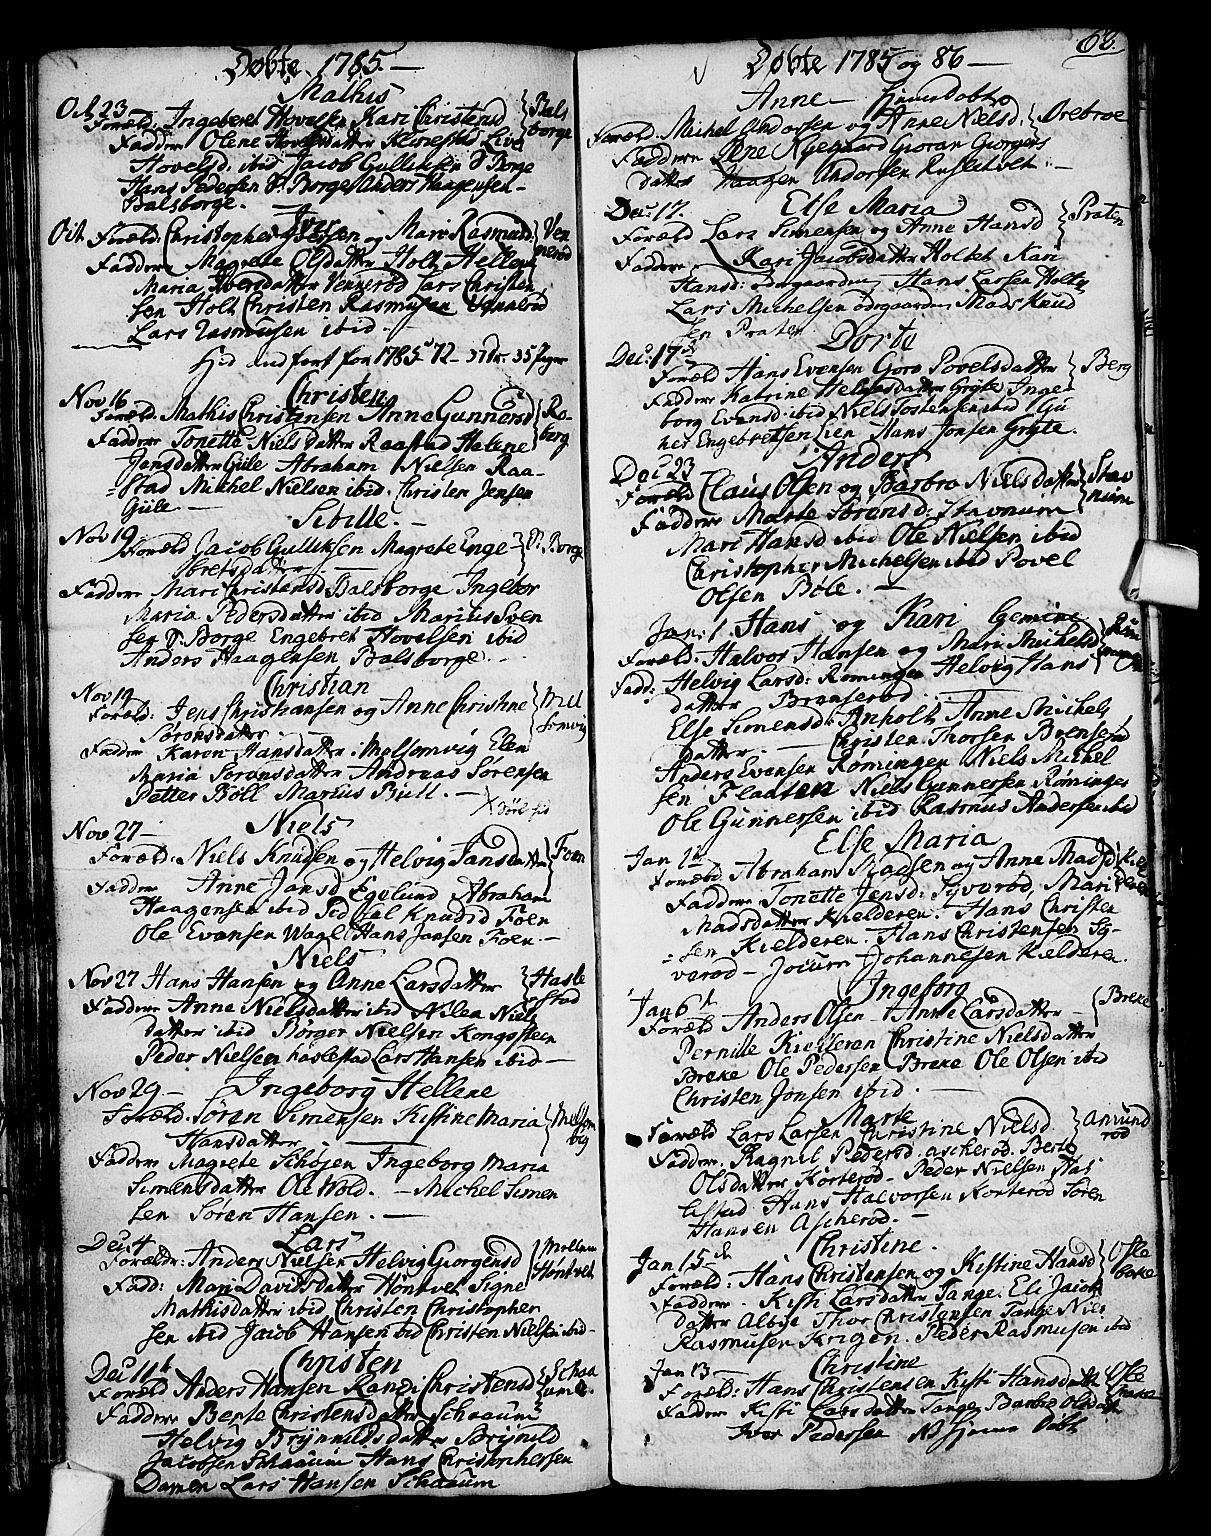 Døbte 1785. —
Mathis
Oct 23
Foræld. Ingebret Hovelsen Kari Christensd
Bals
borge
Faddere Olene Hovelsdatter Klavestad Live
Hovelsd. ibid Jacob Gulliksen S. Borge
Hans Pedersen S. Borge Anders Haagensen
Balsborge. —
Iver
Oct Foræld. Christopher Iversen og Mari Rasmusd
Ven
nerød
Faddere Magrete Olsdatter Holt Hellene
Maria Iversdatter Vennerød Lars Christen
sen Holt Christen Rasmusen Vennerød
Lars Rasmusen ibid. —
Hid indført for 1785 72 — 37 Dr. 35 Piger
Nov 16
Christen
Foræld. Mathis Christensen Anne Gunnersd
Ro
berg
Faddere Tonette Nielsdatter Raastad Helene
Jensdatter Güle Abraham Nielsen Raa-
stad Michel Nielsen ibid. Christen Jensen
Güle —
Sibille. —
Nov 19
Foræld Jacob Gulliksen Magrete Enge-
bretsdatter —
S. Borge
Faddere Mari Christensd Balsborge Ingebor
Maria Pedersdatter ibid Marius Sven
sen S. Borge Engebret Hovelsen ibid
Anders Haagensen Balsborge. —
Nov 19
Christian
Foræld: Jens Christiansen og Anne Christine
Sørensdatter
Mel
somvig
Faddere Karen Hansdatter Melsomvig Elen
Maria Sørensdatter Andreas Sørensen
Petter Böll Marius Bull. —
Nov 27 —
Niels
Foræld: Niels Knudsen og Helvig Jansdatter
Foen
Faddere Anne Jansd Egelund Abraham
Haagensen ibid Knudsd Foen
Ole Evensen Wagl Hans Jansen Foen. —
Niels
Nov 27 Hans Hansen og Anne Larsdatter
Hasle
stad
Faddere Anne Nielsdatter ibid Nilea Niels
datter ibid Børger Nielsen Kongssteen
Peder Nielsen Haslestad Lars Hansen ibid —
Nov 29 —
Ingeborg Hellene
Foræld. Søren Simensen Kistine Maria
Hansdatter
Melsom
vig
Faddere Magrete Schøjen Ingeborg Maria
Simensdatter Ole Wold. — Michel Simen
sen Søren Hansen. —
Dec. 4
Lars
Foræld: Anders Nielsen Helvig Giorgensd
Mellem
Hontvet
Fadd: Mari Davidsdatter Hontvet Signe
Mathisdatter ibid Christen Christopher
sen ibid Jacob Hansen ibid Christen Nielsen ibid —
Dec 11t
Christen
Foræld Anders Hansen Randi Christensd
Schaa
um
Faddere Berte Christensdatter Schaaum
Helvig Brynnildsdatter Brynild
Jacobsen Schaaum Hans Christophersen
Damen Lars Hansen Schaaum
63.
Døbte 1785 og 86 —
Anne — hjemedøbt
Foræld. Michel Andersen og Anne Nielsd.
Orebroe
Faddere Lene Nyegaard Gioran Giorgens
datter Haagen Andorsen Ruseltvet
Dec: 17.
Else Maria
Foræld Lars Simensen og Anne Hansd
Praten
Faddere Kari Jacobsdatter Holtet Kari
Hansd: odegaarden Hans Larsen Holtet
Lars Michelsen odegaarden Mads Knud
sen Praten
Dorte
Dec. 17
Foræld Hans Evensen Goro Povelsdatter
Berg
Faddere Katrine Helgesdatter Gryte Inge-
borg Evensd: ibid Niels Tostensen ibid Gju
her Engebretsen Lien Hans Jonsen Gryte.
Anders
Dec 23
Foræld Claus Olsen og Barbro Nielsdatter
Stav
num
Faddere Marte Sørensd: Stavnum
Mari Hansd ibid Ole Nielsen ibid
Christopher Michelsen ibid Povel
Olsen Bøle. —
Jan: 1. Hans og Kari Gemine
Foræld: Halvor Hansen og Mari Michelsd
Fadd: Helvig Larsd: Romingen Helvig Hans
datter Brenserød
Else Simensd: Anholt Anne Michels
datter — Christen Thorsen Brenserød
Anders Evensen Romingen Niels Michel
sen Flaaten Niels Gunnersen Rominges
Ole Gunnersen ibid Rasmus Andersen ibid
Else Maria
Jan 1st
Foræld Abraham Madsen og Anne Madsd
Kiel
deren
Faddere Tonette Jensd: Syverød, Mari
Madsdatter Kielderen. Hans Christen
sen Kielderen. Hans Christensen Sy-
verød — Jocum Johannesen Kielderen.
Ingeborg
Jan 6t
Foræld Anders Olsen Anne Larsdatter —
Breke
Pernille Kielleran Christine Nielsdatter
Breke Ole Pedersen Breke Ole Olsen ibid
Christen Jonsen ibid. —
Marte
Foræld Lars Larsen Christine Nielsd.
Anvund
rød
Faddere. Ragnil Pedersd. ascherod. Berte
Olsdatter Korterød. Peder Nielsen
Hans Halvorsen Korterød Søren
Hansen Ascherød. —
Christine.
Jan 15 de
Foræld: Hans Christensen og Kistine Hansd
Ofle
bake
Faddere. Kisti Larsdatter Tange. Eli Jacobs
datter Albye Thor Christensen Tange Niels
Rasmusen Krigen. Peder Rasmusen ibid
Jan 13 —
Christine
Foræld: Hans Christensen Kisti Hansdatt
Ofle
bake
Faddere Kisti Larsdatter Tange Barbro Olsdatt
Iver Pedersen NB hjemme Døbt